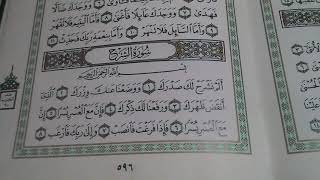 وَوَجَدَكَ ضَآلًّا
فَهَدَىٰ ٧ وَوَجَدَكَ عَآئِلًا فَأَغْنَىٰ ٨ فَأَمَّا ٱلْيَتِيمَ فَلَا تَقْهَرْ
٩ وَأَمَّا ٱلسَّآئِلَ فَلَا تَنْهَرْ ١٠ وَأَمَّا بِنِعْمَةِ رَبِّكَ فَحَدِّثْ ١١
سُورَةُ الشَّرْحِ
بِسْمِ ٱللَّهِ ٱلرَّحْمَٰنِ ٱلرَّحِيمِ
أَلَمْ نَشْرَحْ لَكَ صَدْرَكَ ١ وَوَضَعْنَا عَنكَ وِزْرَكَ ٢ ٱلَّذِىٓ
أَنقَضَ ظَهْرَكَ ٣ وَرَفَعْنَا لَكَ ذِكْرَكَ ٤ فَإِنَّ مَعَ ٱلْعُسْرِ يُسْرًا ٥ إِنَّ
مَعَ ٱلْعُسْرِ يُسْرًا ٦ فَإِذَا فَرَغْتَ فَٱنصَبْ ٧ وَإِلَىٰ رَبِّكَ فَٱرْغَب ٨
٥٩٦